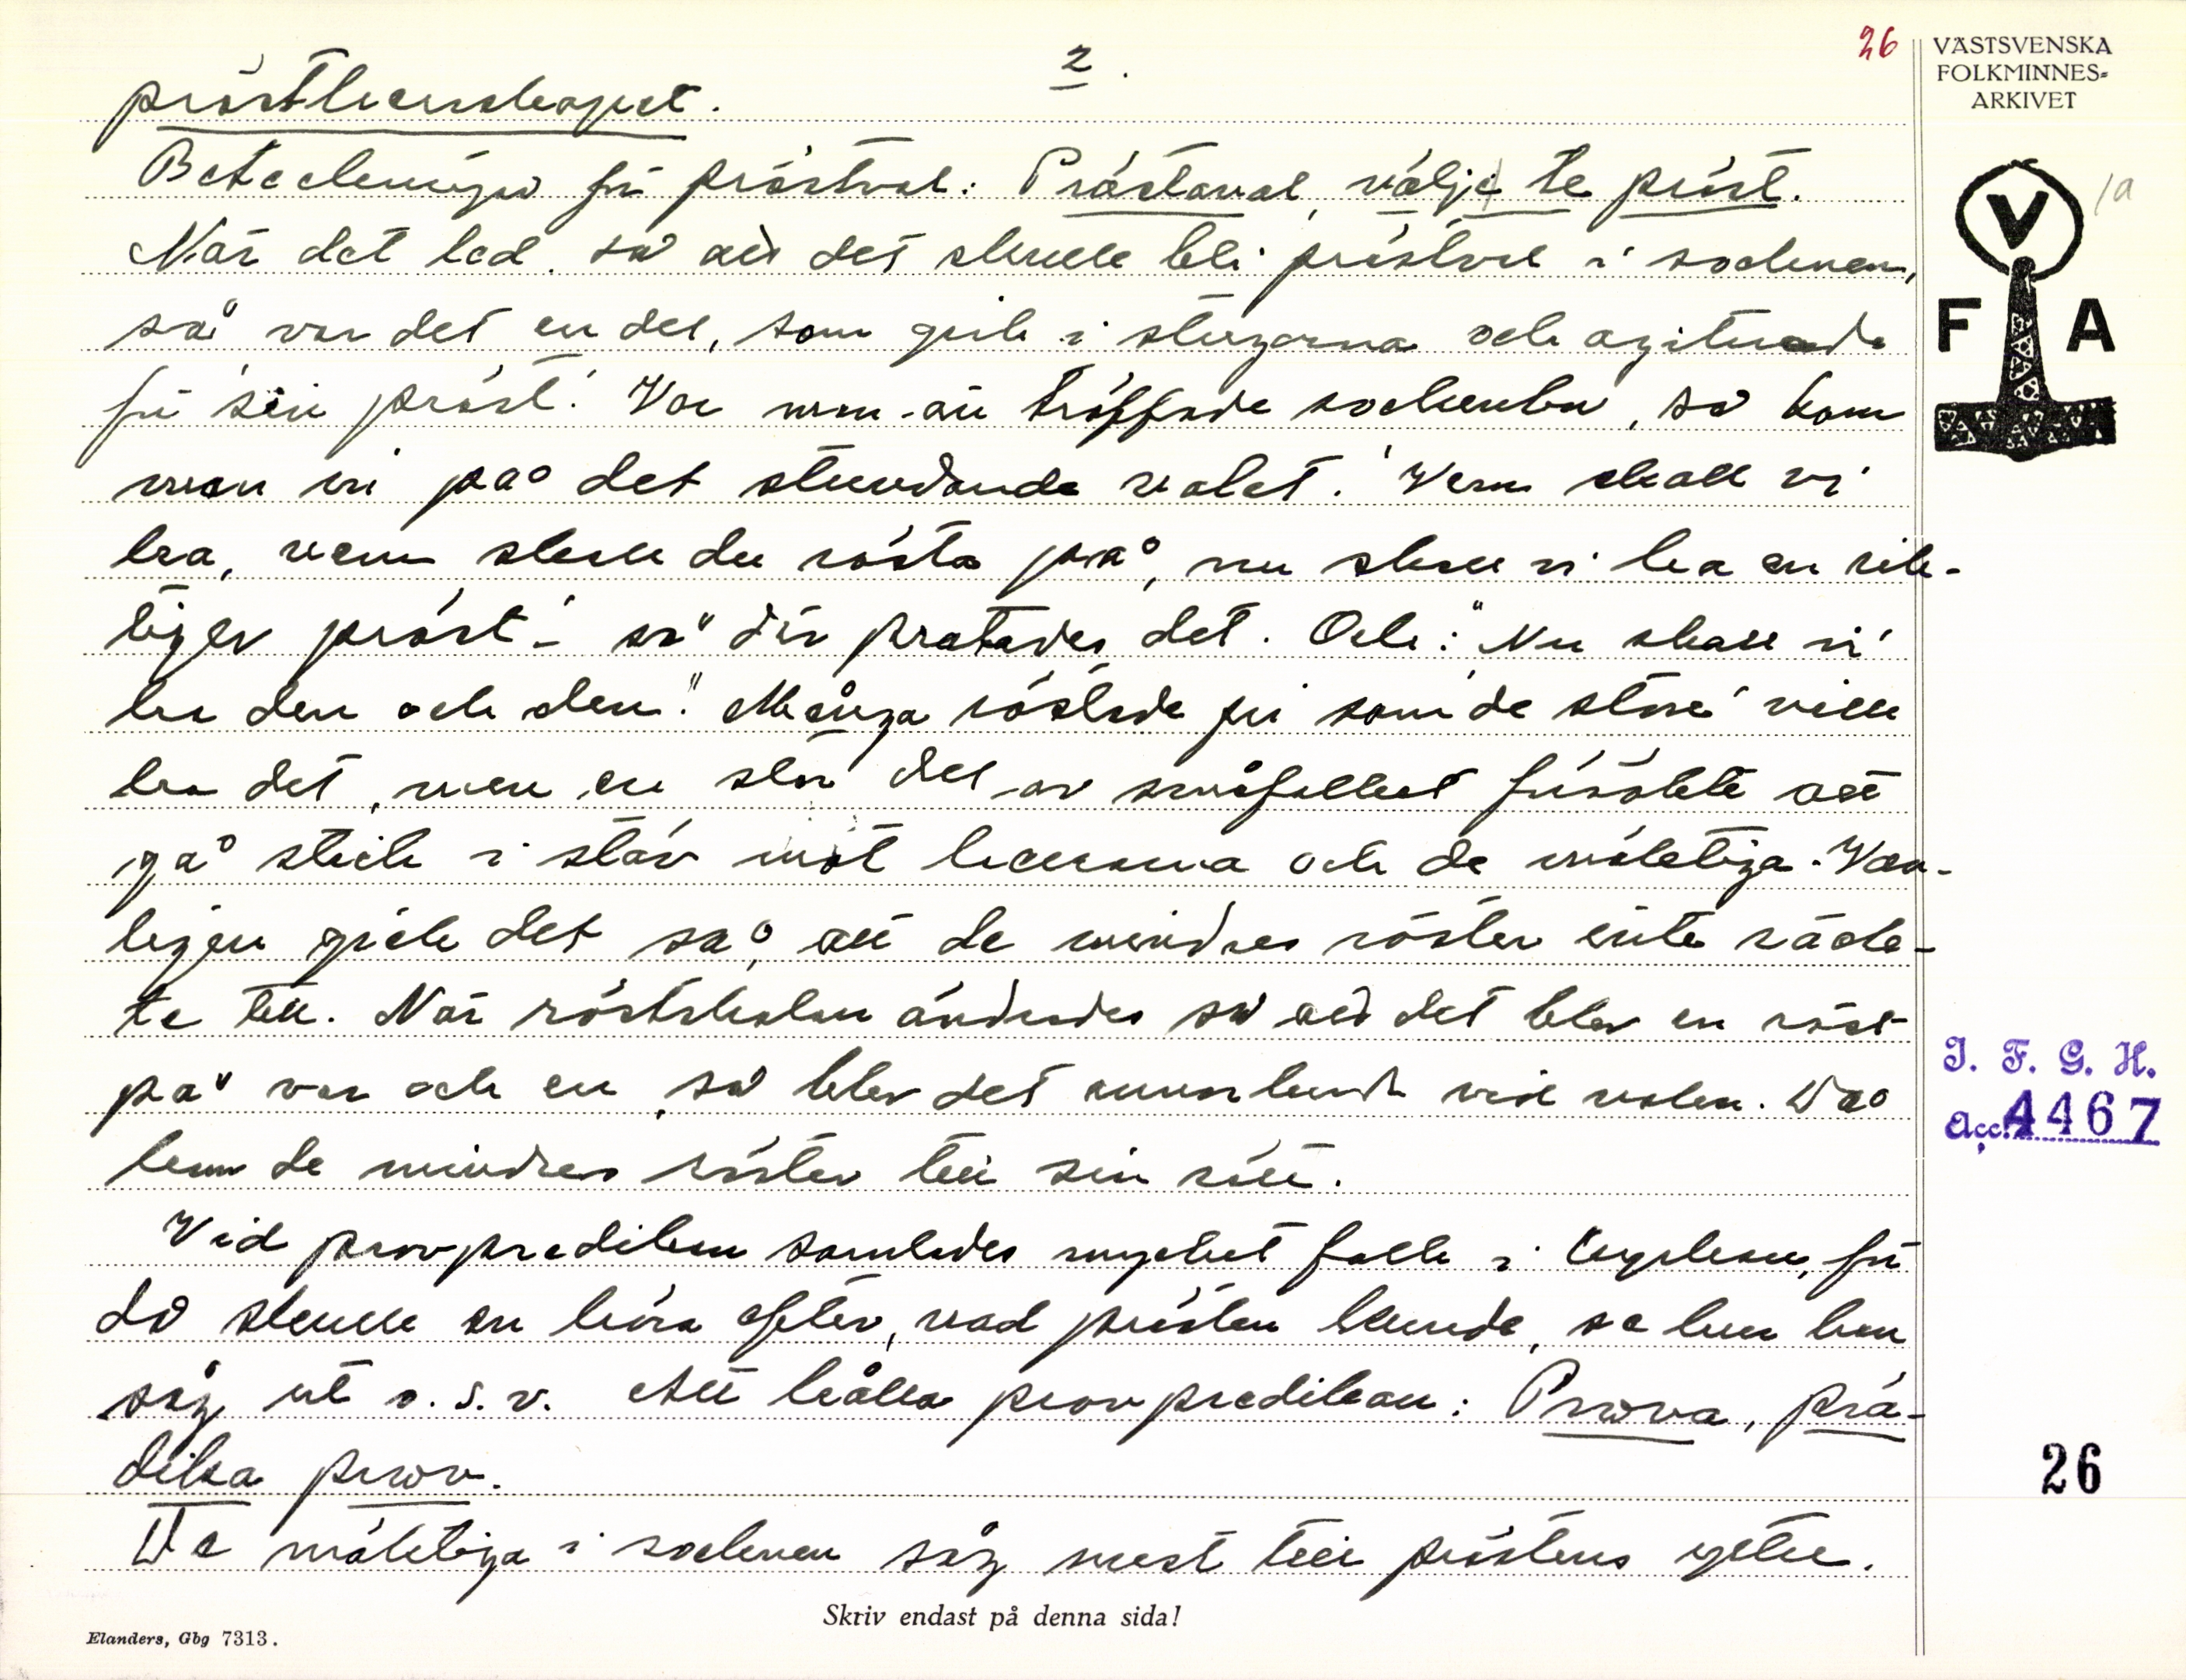 2.
26
VÄSTSVENSKA
FOLKMINNES-
ARKIVET
prästkunskapet.
Beteckningar för prästval: Prästaval, välje te präst.
När det led så att det skulle bli prästval i socknen,
så var det en del, som gick i stugorna och agiterade
för "sin präst". Var man än träffade sockenbor, så kom
man in på det stundande valet. "Vem skall vi
ha, vem skall du rösta på, nu skall vi ha en rik-
tiger präst" - så där pratades det. Och: "Nu skall vi
ha den och den." Många röstade för som "de store" ville
ha det, men en stor del av småfolket försökte att
gå stick i stäv mot herrarna och de mäktiga. Van-
ligen gick det så, att de mindres röster inte räck-
te till. När röstskalan ändrades så att det blev en röst
på var och en, så blev det annorlunda vid valen. Då
kom de mindres röster till sin rätt.
Vid provpredikan samlades mycket folk i kyrkan, för
då skulle en höra efter, vad prästen kunde, se hur han
såg ut o.s.v. Att hålla provpredikan: Prova, prä-
dika prov.
De mäktiga i socknen såg mest till prästens yttre.
V
F A
1a
I. F. G. H.
Acc. 4467
26
Skriv endast på denna sida!
Elanders, Gbg 7313.